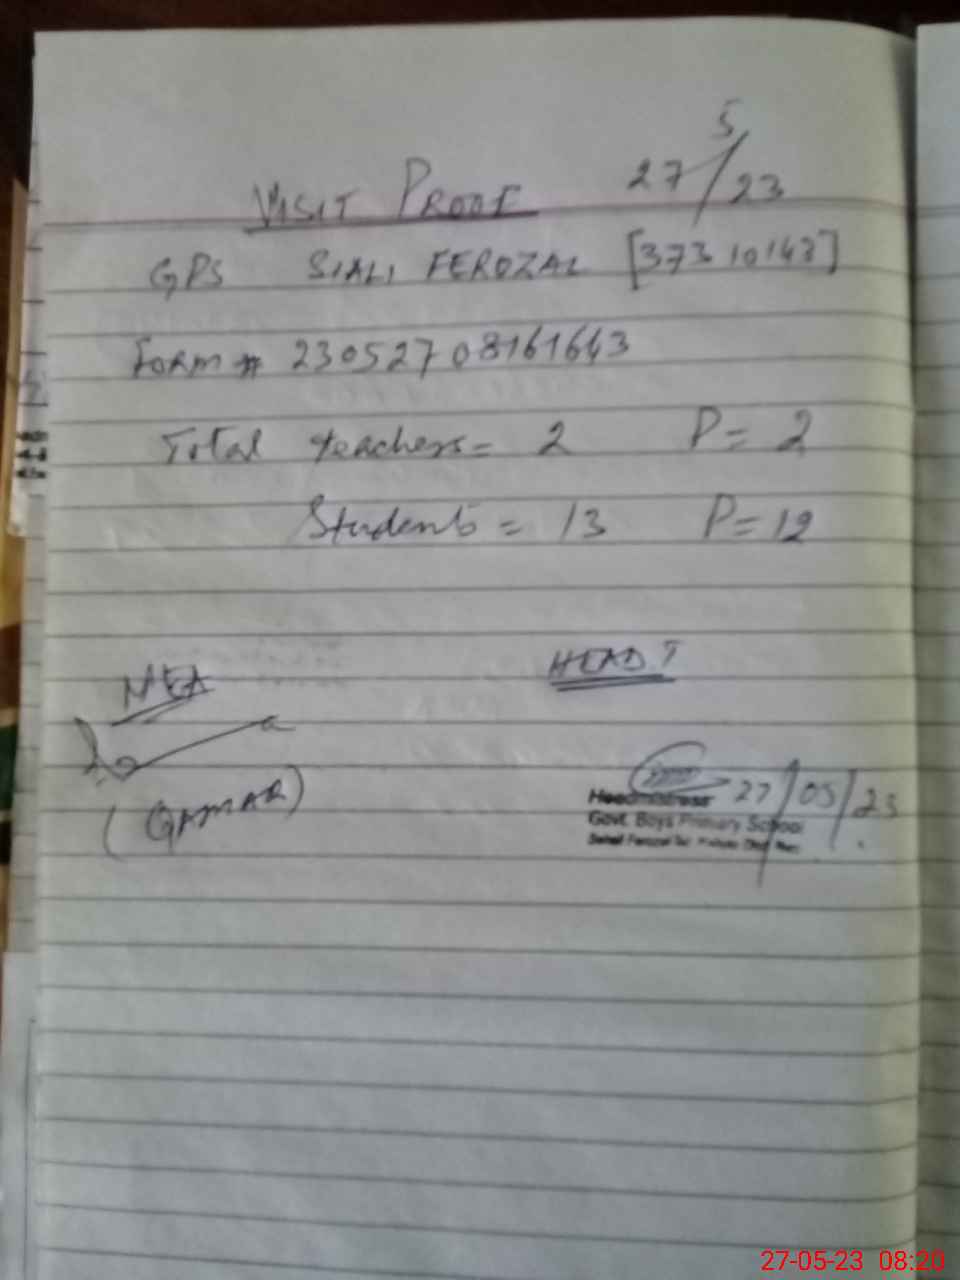 5
VISIT PROOF 27/23
GPS SIALI FEROZAL [37310143]
Form # 23052708161643
Total teachers = 2 P = 2
Students = 13 P = 12
MEA HEAD T
(QAMAR)
Headmistress 27/05/23
Govt. Boys Primary School
27-05-23 08:20